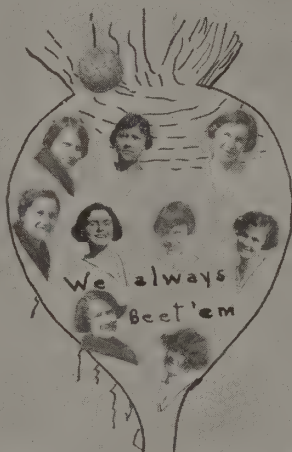 We always
Beet'em